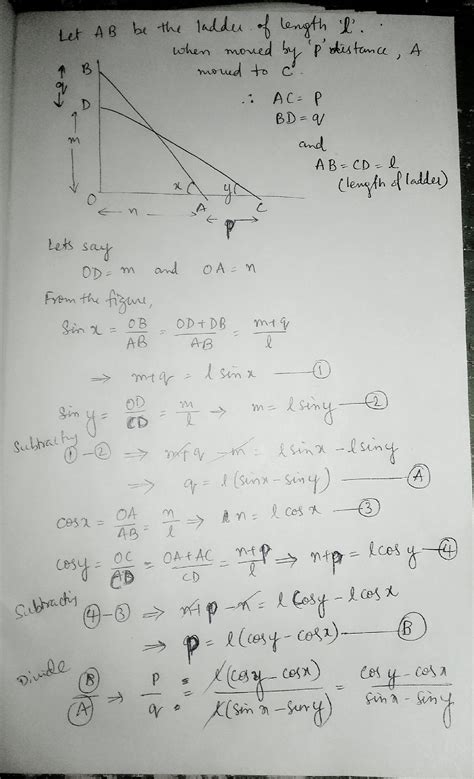 Let AB be the ladder of length 'l'.
when moved by 'p' distance, A
moved to C.
∴ AC = p
BD = q
and
AB = CD = l
(length of ladder)
B
q
D
m
O
x
y
A
C
n
p
Lets say
OD = m and OA = n
From the figure,
Sin x = OB/AB = OD+DB/AB = m+q/l
⇒ m+q = l sin x — ①
Sin y = OD/CD = m/l ⇒ m = l sin y — ②
① - ② ⇒ m+q - m = l sin x - l sin y
⇒ q = l (sin x - sin y) — Ⓐ
cos x = OA/AB = n/l ⇒ n = l cos x — ③
cos y = OC/CD = OA+AC/CD = n+p/l ⇒ n+p = l cos y — ④
④ - ③ ⇒ n+p - n = l cos y - l cos x
⇒ p = l (cos y - cos x) — Ⓑ
Divide
Ⓑ/Ⓐ ⇒ p/q = l (cos y - cos x)/l (sin x - sin y) = cos y - cos x/sin x - sin y